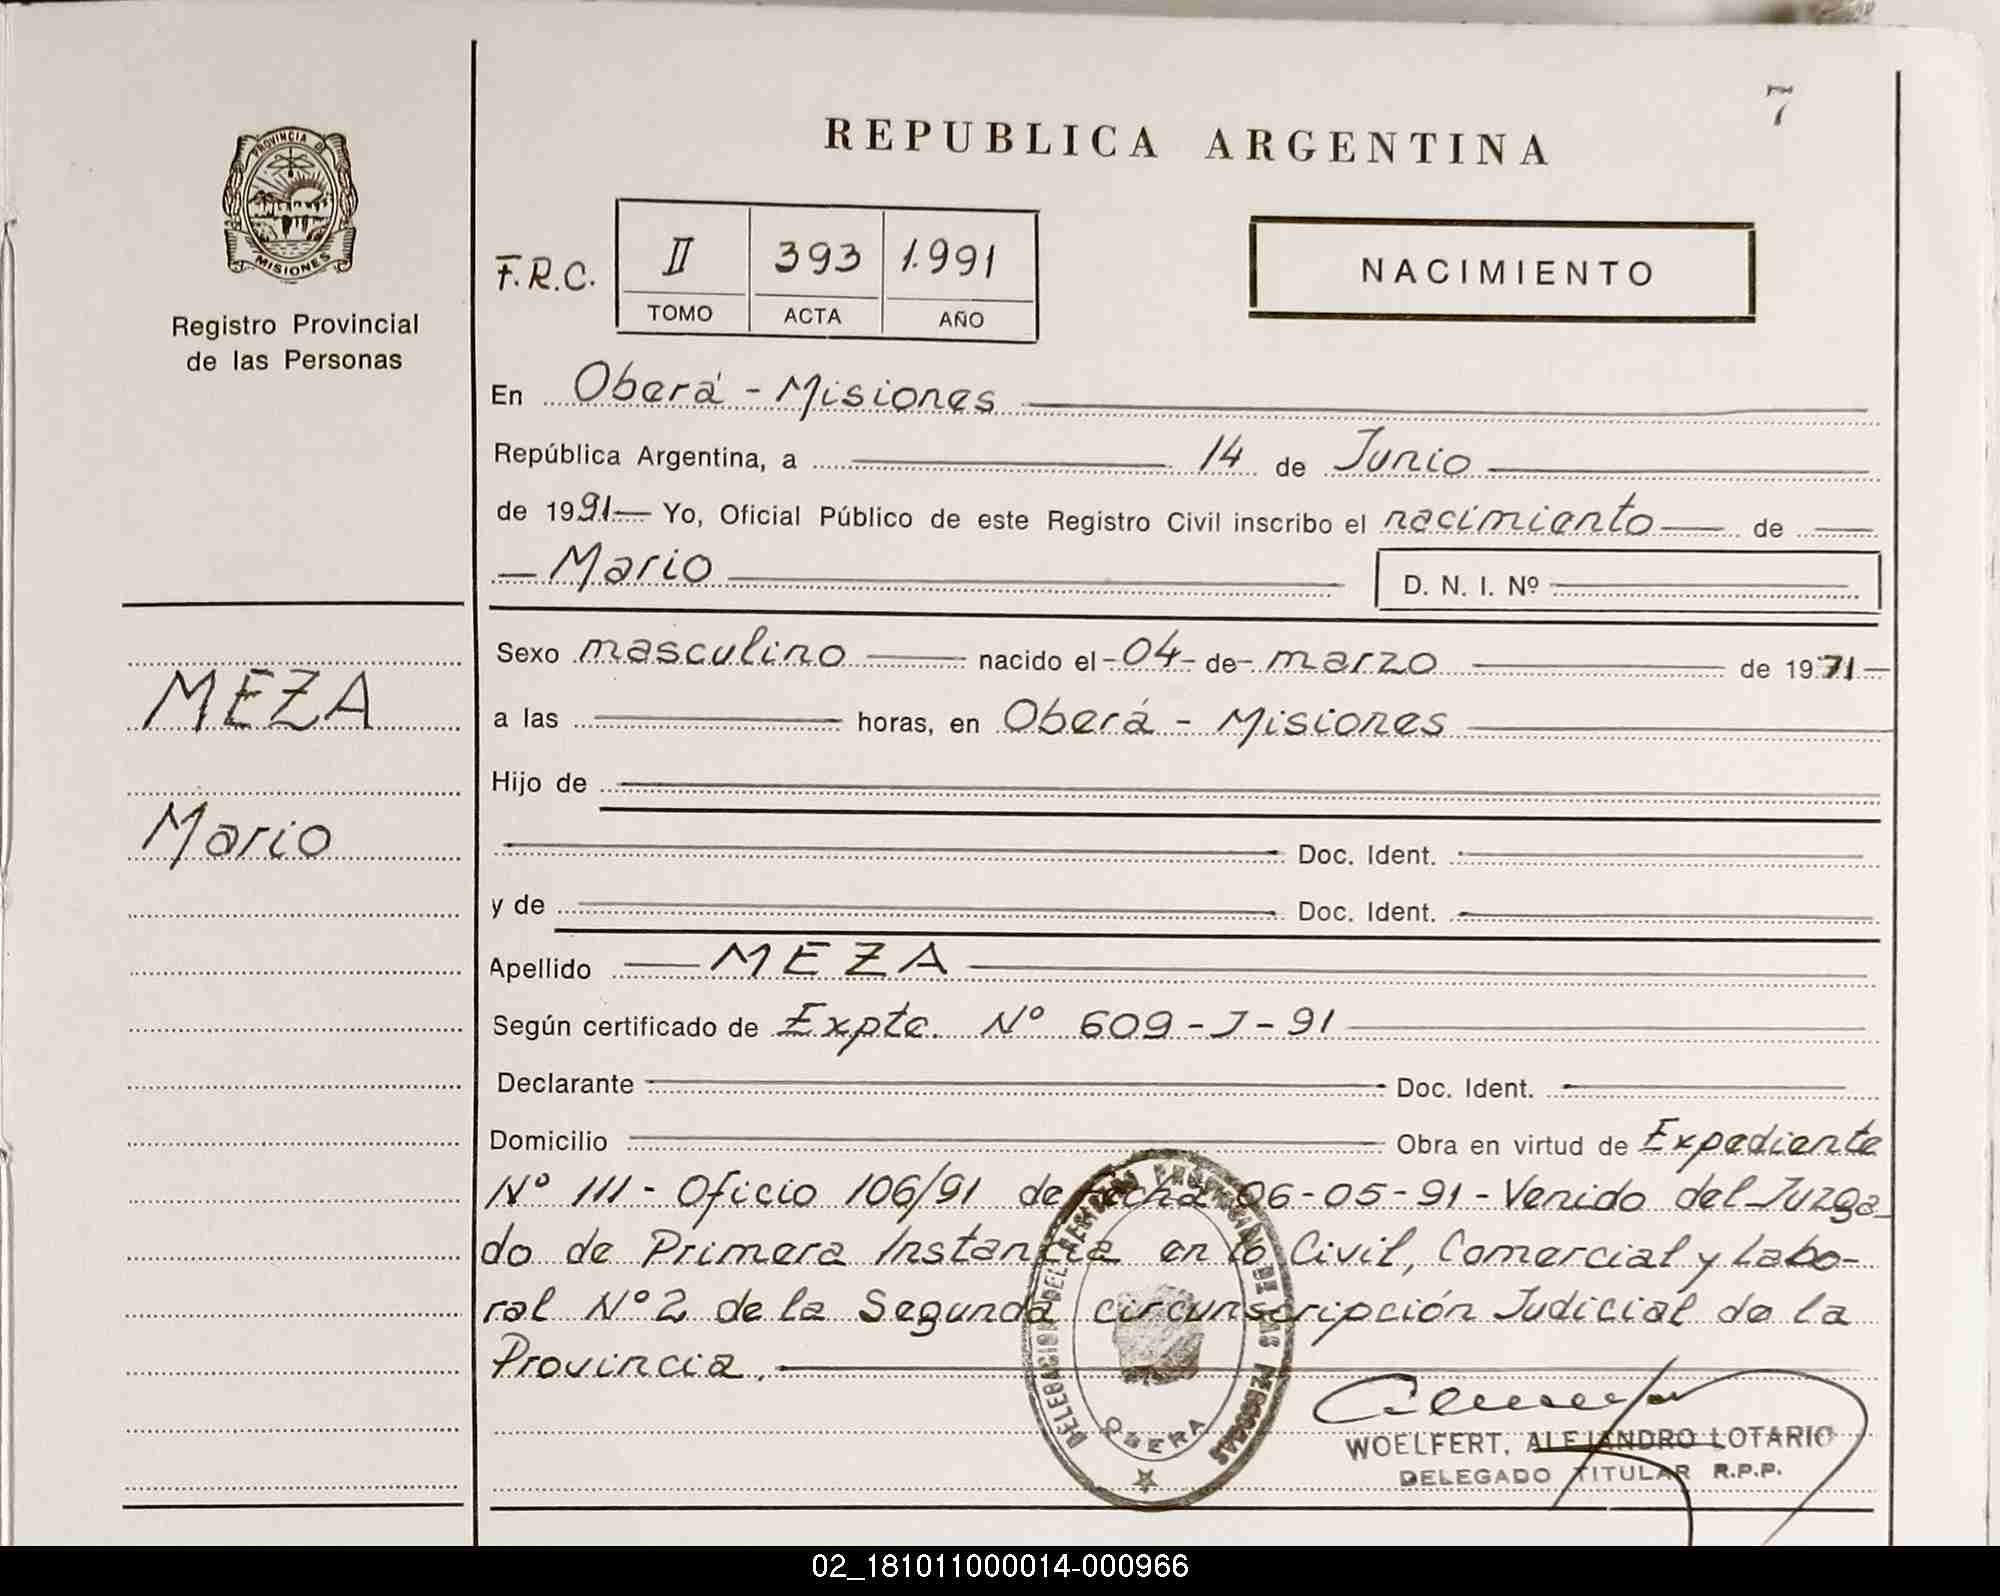 7
REPUBLICA ARGENTINA
PROVINCIA D
MISIONES
Registro Provincial
de las Personas
F.R.C.
II 393 1.991
TOMO ACTA AÑO
NACIMIENTO
En Oberá - Misiones
República Argentina, a 14 de Junio
de 1991 Yo, Oficial Público de este Registro Civil inscribo el nacimiento de
Mario
D. N. I. Nº
MEZA
Mario
Sexo masculino nacido el - 04 - de - marzo de 1971 -
a las horas, en Oberá - Misiones
Hijo de
Doc. Ident.
y de Doc. Ident.
Apellido MEZA
Según certificado de Expte. Nº 609-J-91
Declarante Doc. Ident.
Domicilio Obra en virtud de Expediente
Nº 111 - Oficio 106/91 de fecha 06-05-91 - Venido del Juzga
do de Primera Instancia en lo Civil, Comercial y Labo-
ral Nº 2 de la Segunda circunscripción Judicial de la
Provincia.
DELEGACION DEL REGISTRO PROVINCIAL DE LAS PERSONAS
OBERA
WOELFERT, ALEJANDRO LOTARIO
DELEGADO TITULAR R.P.P.
02_181011000014-000966